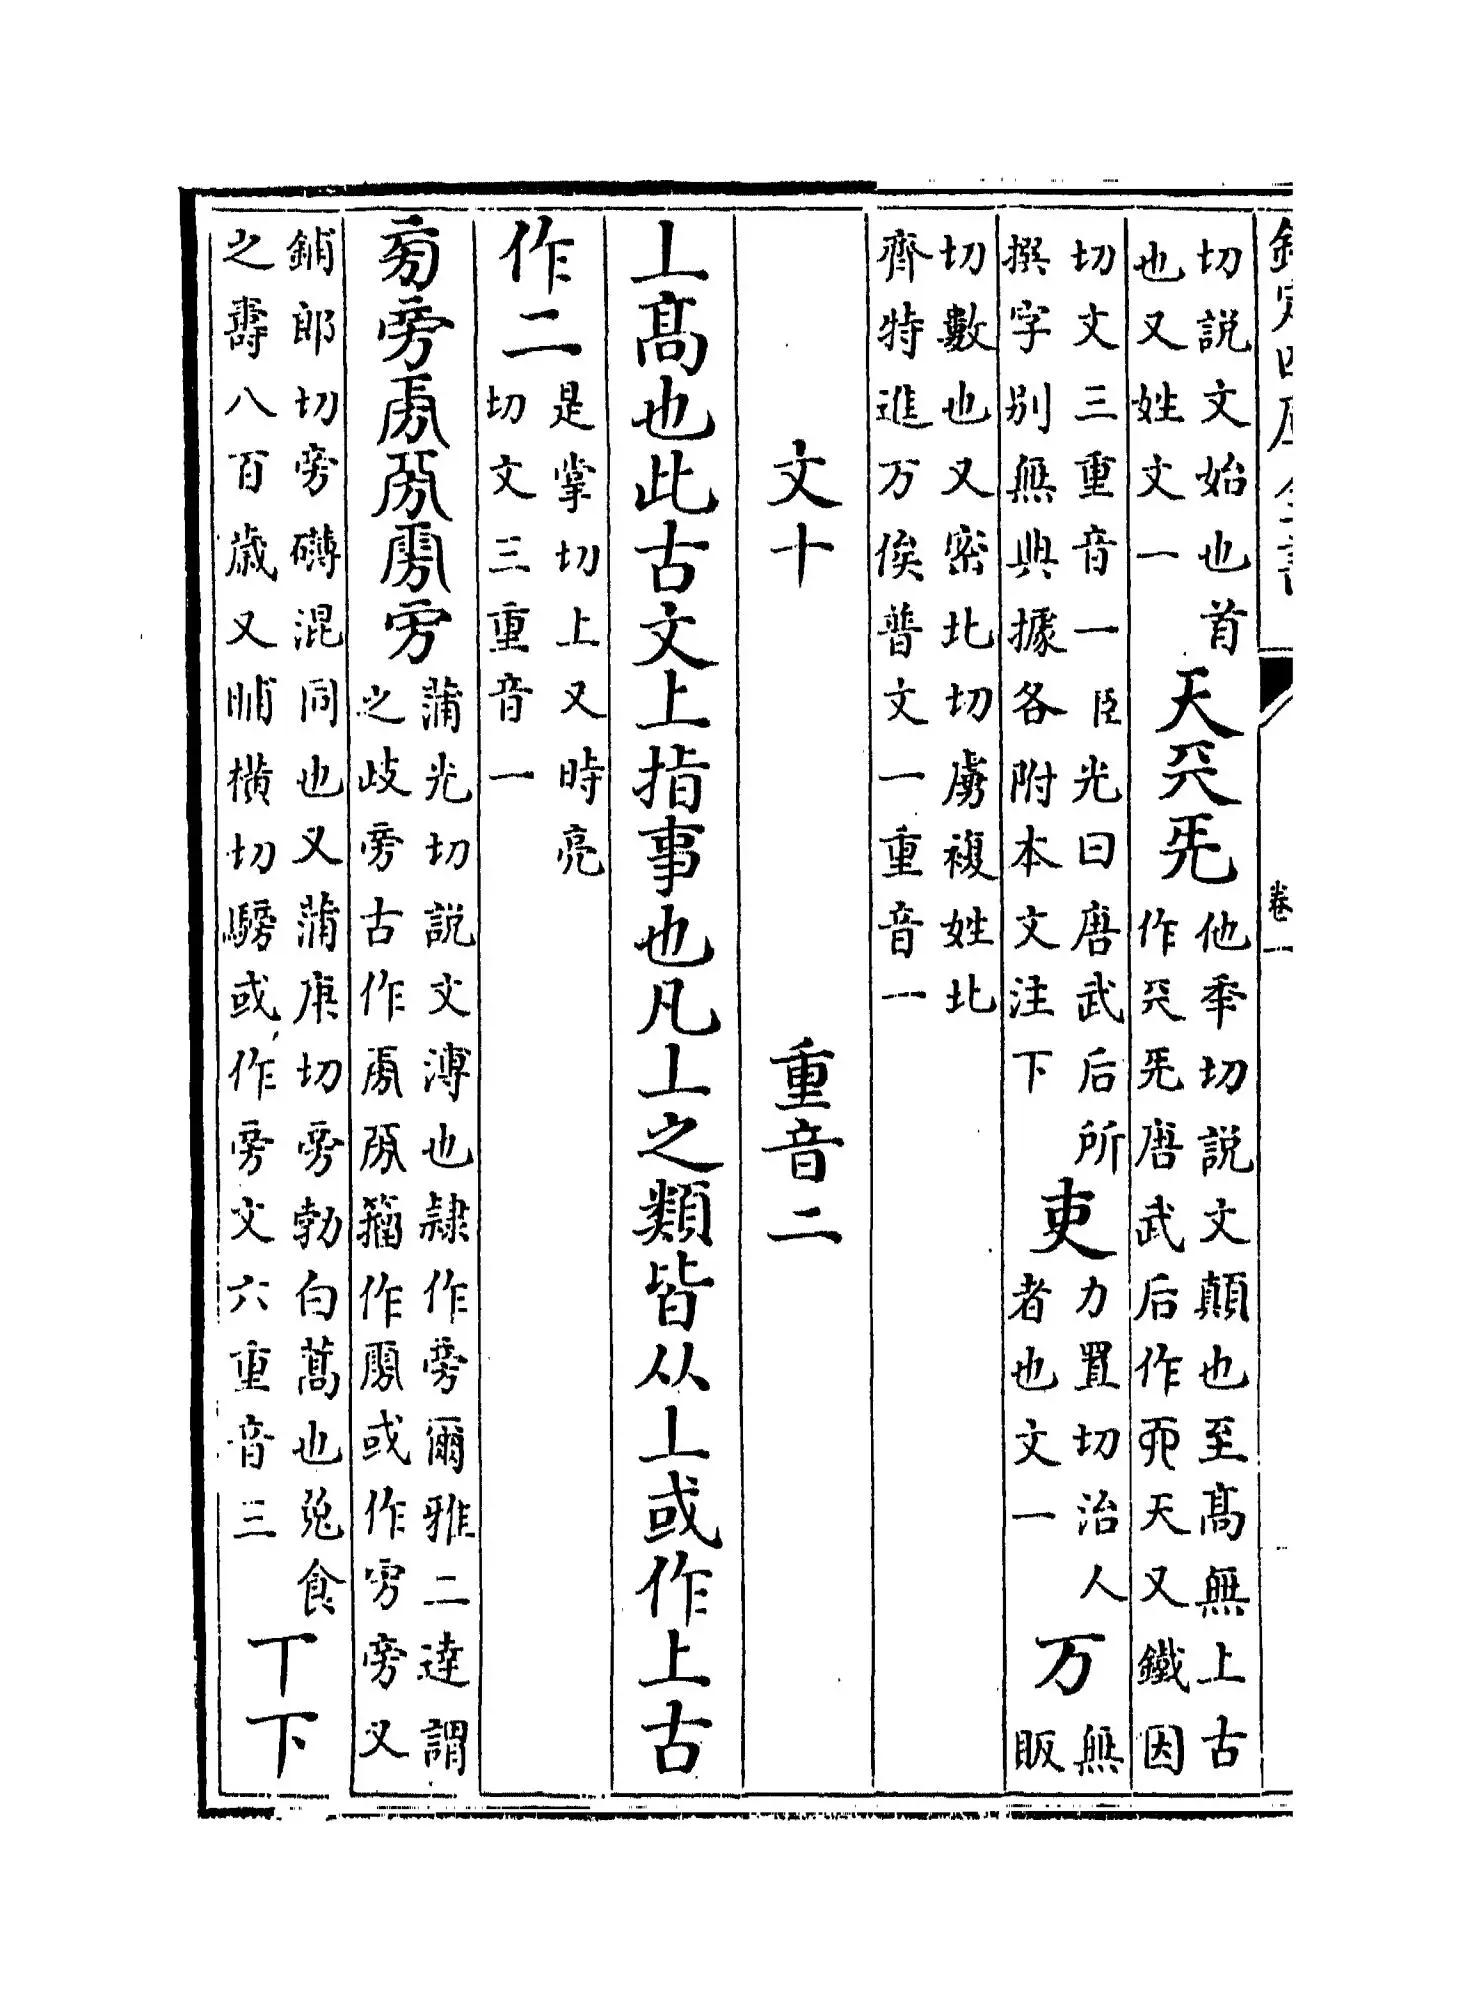 欽定四庫全書
卷一
切説文始也首
也又姓文一
天𠀘兂
他年切説文顛也至髙無上古
作𠀘兂唐武后作𠀑天又鐵因
切文三重音一臣光曰唐武后所
撰字别無典據各附本文注下
吏
力置切治人
者也文一
万
無
販
切數也又密北切虜複姓北
齊特進万俟普文一重音一
文十 重音二
丄髙也此古文上指事也凡丄之類皆从丄或作上古
作二
是掌切上又時亮
切文三重音一
㫄旁
蒲光切説文溥也隷作旁爾雅二達謂
之歧旁古作籀作或作旁又
鋪郎切旁礴混同也又蒲庚切旁勃白蒿也兔食
之壽八百歳又晡横切騯或作旁文六重音三
丅下